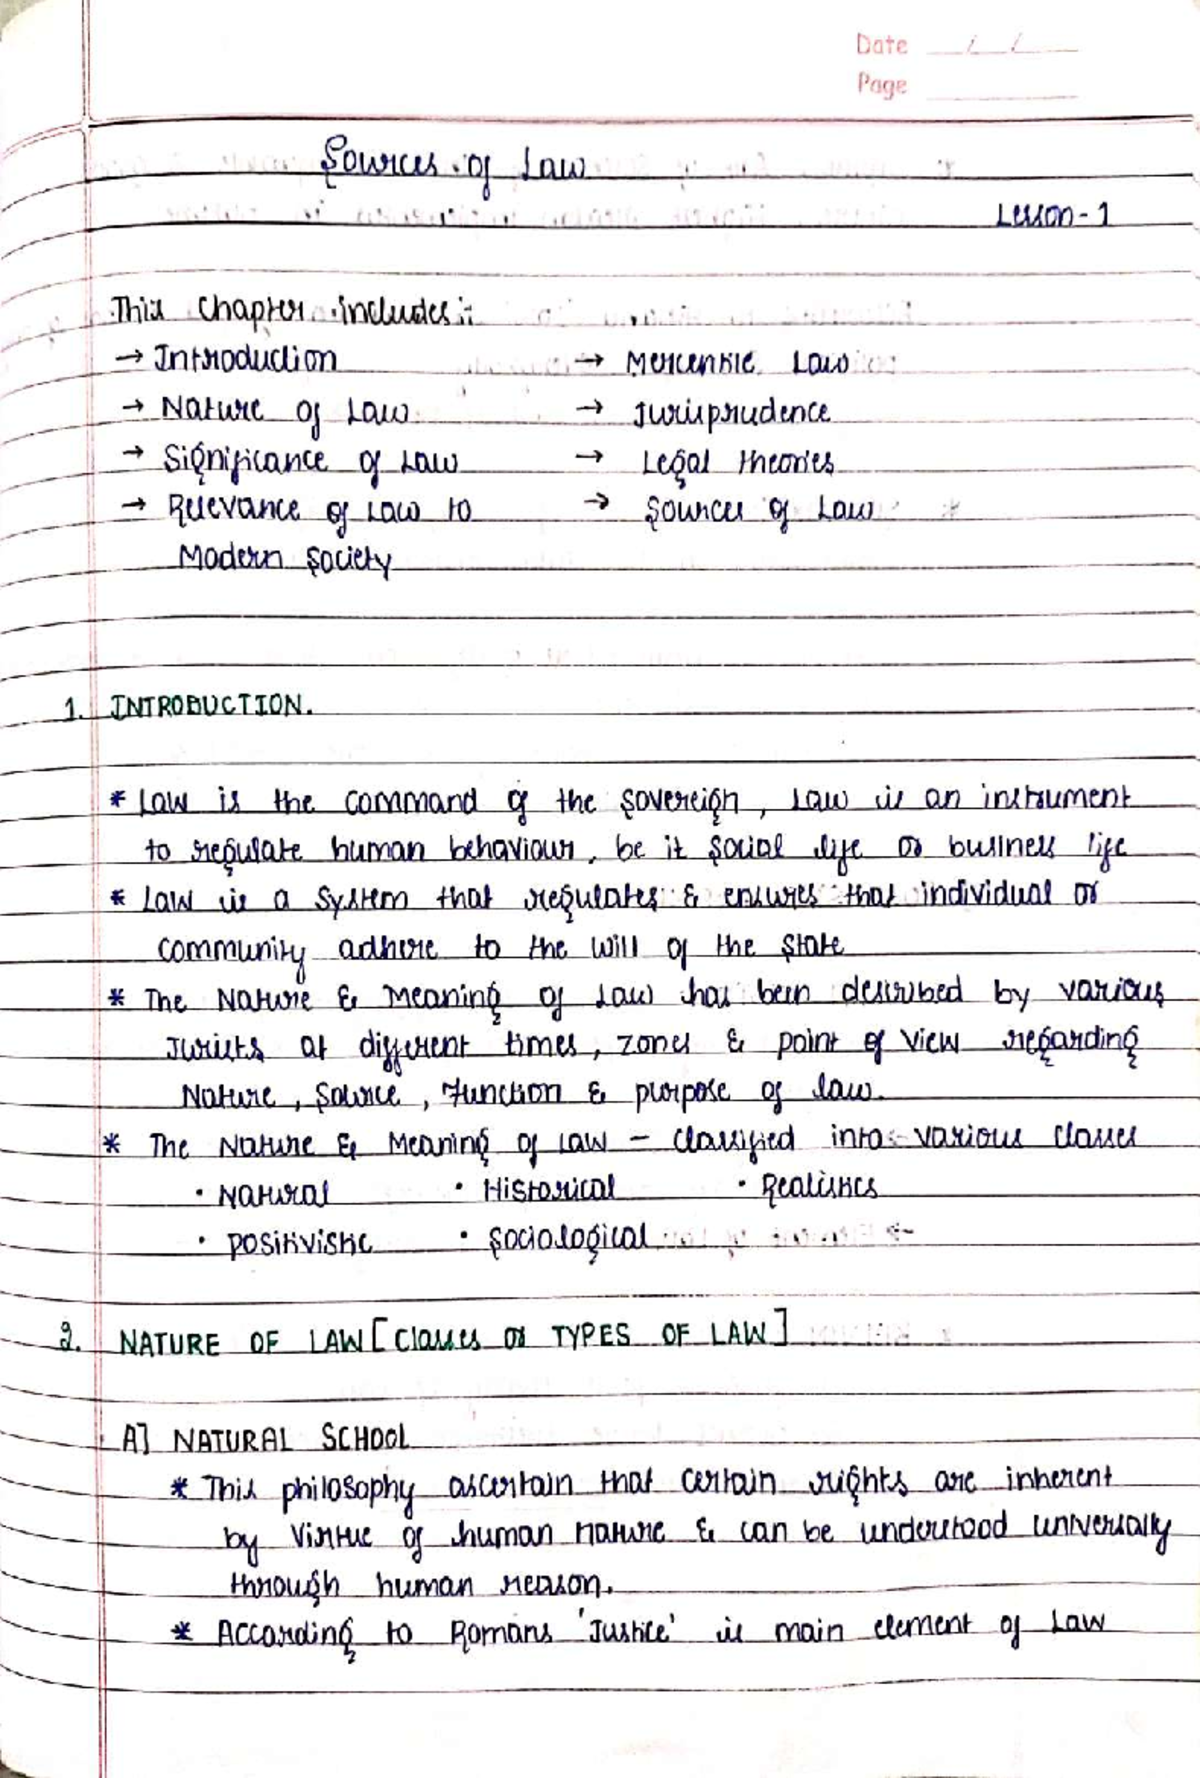 Date / /
Page
Sources of Law
Lesson-1
This Chapter includes:
→ Introduction → Mercentile Law
→ Nature of Law → Jurisprudence
→ Significance of Law → Legal theories
→ Relevance of Law to → Sources of Law
Modern Society
1. INTRODUCTION.
* Law is the command of the sovereign, Law is an instrument
to regulate human behaviour, be it social life or business life
* Law is a System that regulates & ensures that individual or
community adhere to the will of the State
* The Nature & Meaning of Law has been described by various
Jurists at different times, zones & point of view regarding
Nature, Source, Function & purpose of law.
* The Nature & Meaning of Law - classified into various classes
• Natural • Historical • Realistics
• Positivistic • Sociological
2. NATURE OF LAW [Classes or TYPES OF LAW]
A] NATURAL SCHOOL
* This philosophy ascertain that certain rights are inherent
by virtue of human nature & can be understood universally
through human reason.
* According to Romans 'Justice' is main element of Law